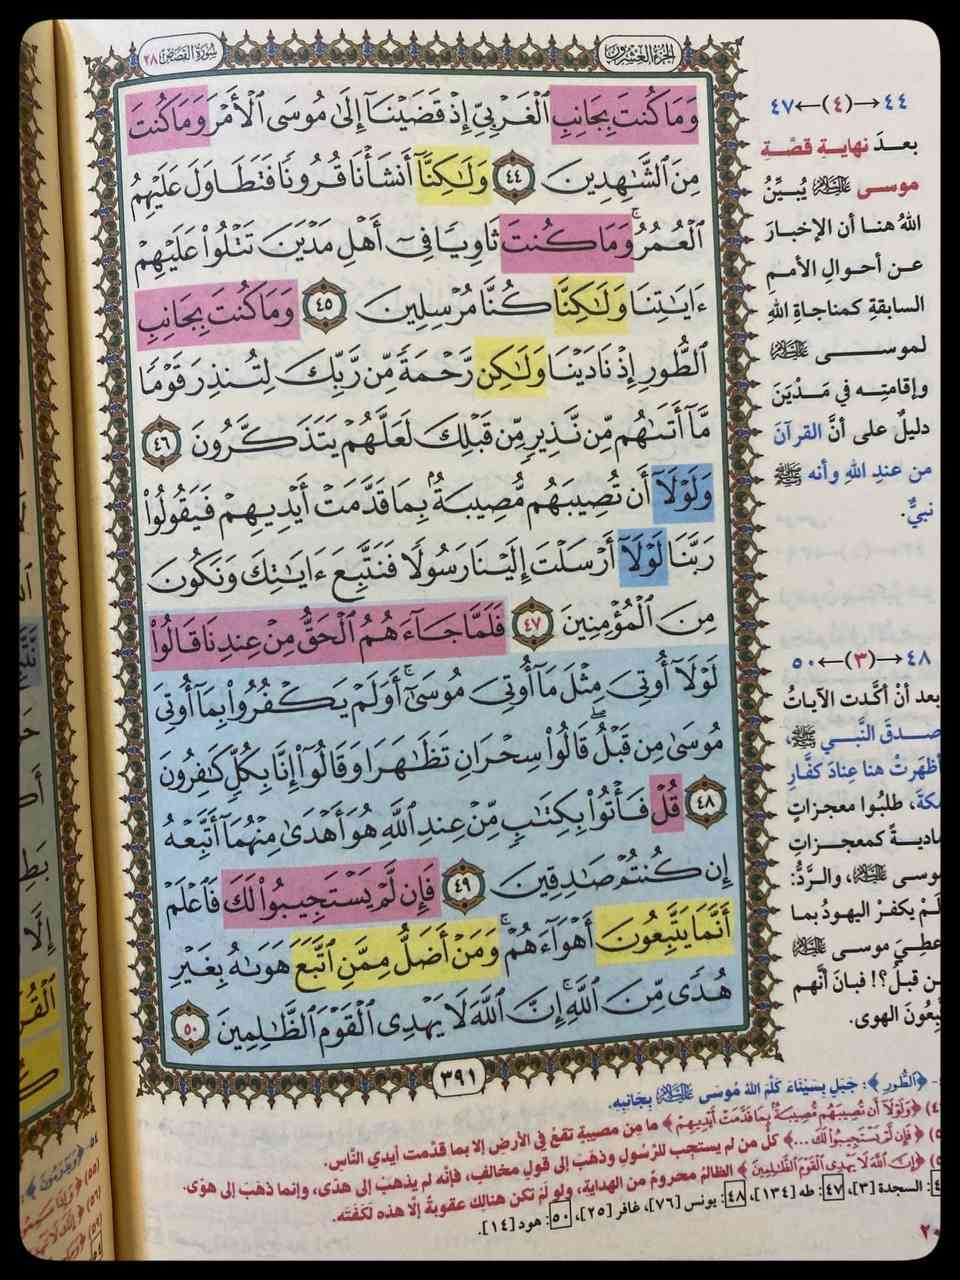 سورة القصص ٢٨
الجزء العشرون
وَمَا كُنتَ بِجَانِبِ ٱلْغَرْبِىِّ إِذْ قَضَيْنَآ إِلَىٰ مُوسَى ٱلْأَمْرَ وَمَا كُنتَ
مِنَ ٱلشَّٰهِدِينَ ٤٤ وَلَٰكِنَّآ أَنشَأْنَا قُرُونًا فَتَطَاوَلَ عَلَيْهِمُ
ٱلْعُمُرُ ۚ وَمَا كُنتَ ثَاوِيًا فِىٓ أَهْلِ مَدْيَنَ تَتْلُوا۟ عَلَيْهِمْ
ءَايَٰتِنَا وَلَٰكِنَّا كُنَّا مُرْسِلِينَ ٤٥ وَمَا كُنتَ بِجَانِبِ
ٱلطُّورِ إِذْ نَادَيْنَا وَلَٰكِن رَّحْمَةً مِّن رَّبِّكَ لِتُنذِرَ قَوْمًا
مَّآ أَتَىٰهُم مِّن نَّذِيرٍ مِّن قَبْلِكَ لَعَلَّهُمْ يَتَذَكَّرُونَ ٤٦
وَلَوْلَآ أَن تُصِيبَهُم مُّصِيبَةٌۢ بِمَا قَدَّمَتْ أَيْدِيهِمْ فَيَقُولُوا۟
رَبَّنَا لَوْلَآ أَرْسَلْتَ إِلَيْنَا رَسُولًا فَنَتَّبِعَ ءَايَٰتِكَ وَنَكُونَ
مِنَ ٱلْمُؤْمِنِينَ ٤٧ فَلَمَّا جَآءَهُمُ ٱلْحَقُّ مِنْ عِندِنَا قَالُوا۟
لَوْلَآ أُوتِىَ مِثْلَ مَآ أُوتِىَ مُوسَىٰٓ ۚ أَوَلَمْ يَكْفُرُوا۟ بِمَآ أُوتِىَ
مُوسَىٰ مِن قَبْلُ ۖ قَالُوا۟ سِحْرَانِ تَظَٰهَرَا وَقَالُوٓا۟ إِنَّا بِكُلٍّ كَٰفِرُونَ
٤٨ قُلْ فَأْتُوا۟ بِكِتَٰبٍ مِّنْ عِندِ ٱللَّهِ هُوَ أَهْدَىٰ مِنْهُمَآ أَتَّبِعْهُ
إِن كُنتُمْ صَٰدِقِينَ ٤٩ فَإِن لَّمْ يَسْتَجِيبُوا۟ لَكَ فَٱعْلَمْ
أَنَّمَا يَتَّبِعُونَ أَهْوَآءَهُمْ ۚ وَمَنْ أَضَلُّ مِمَّنِ ٱتَّبَعَ هَوَىٰهُ بِغَيْرِ
هُدًى مِّنَ ٱللَّهِ ۚ إِنَّ ٱللَّهَ لَا يَهْدِى ٱلْقَوْمَ ٱلظَّٰلِمِينَ ٥٠
٣٩١
٤٤→(٤)←٤٧
بعدَ نهايةِ قصَّةِ
موسى عليه السلام يُبيِّنُ
اللهُ هنا أن الإخبارَ
عن أحوالِ الأممِ
السابقةِ كمناجاةِ اللهِ
لموسى عليه السلام
وإقامتِه في مَدْيَنَ
دليلٌ على أنَّ القرآنَ
من عندِ اللهِ وأنه ﷺ
نبيٌّ.
٤٨→(٣)←٥٠
بعد أنْ أكَّدت الآياتُ
صدقَ النَّبي ﷺ،
أظهرتْ هنا عِنادَ كفَّارِ
مكةَ، طلبُوا معجزاتٍ
ماديةً كمعجزاتِ
موسى عليه السلام، والردُّ:
لَمْ يكفرْ اليهودُ بما
أُعطِيَ موسى عليه السلام
من قبلُ؟! فبانَ أنَّهم
يتَّبِعُونَ الهوى.
﴿ٱلطُّورِ﴾: جَبَلٍ بِسَيْنَاءَ كَلَّمَ اللهُ مُوسَى عليه السلام بِجَانِبِهِ.
﴿وَلَوْلَآ أَن تُصِيبَهُم مُّصِيبَةٌۢ بِمَا قَدَّمَتْ أَيْدِيهِمْ﴾ ما مِن مصيبةٍ تقعُ في الأرضِ إلا بما قدمت أيدي النَّاس.
﴿فَإِن لَّمْ يَسْتَجِيبُوا۟ لَكَ...﴾ كلُّ من لم يستجِب للرَّسُولِ وذهبَ إلى قولٍ مخالفٍ، فإنَّه لم يذهبْ إلى هدًى، وإنما ذهبَ إلى هوًى.
﴿إِنَّ ٱللَّهَ لَا يَهْدِى ٱلْقَوْمَ ٱلظَّٰلِمِينَ﴾ الظالمُ محرومٌ من الهدايةِ، ولو لم تكن هنالكَ عقوبةٌ إلَّا هذه لَكَفَتْه.
السجدة [٣]، ٤٧: طه [١٣٤]، ٤٨: يونس [٧٦]، غافر [٢٥]، ٥٠: هود [١٤].